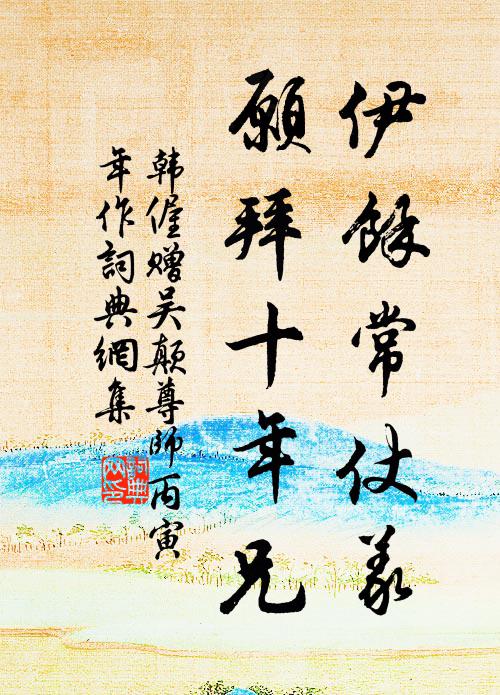 伊餘常仗義
願拜十年兄
韩偓赠吴颠尊師丙寅
年作詞典網集